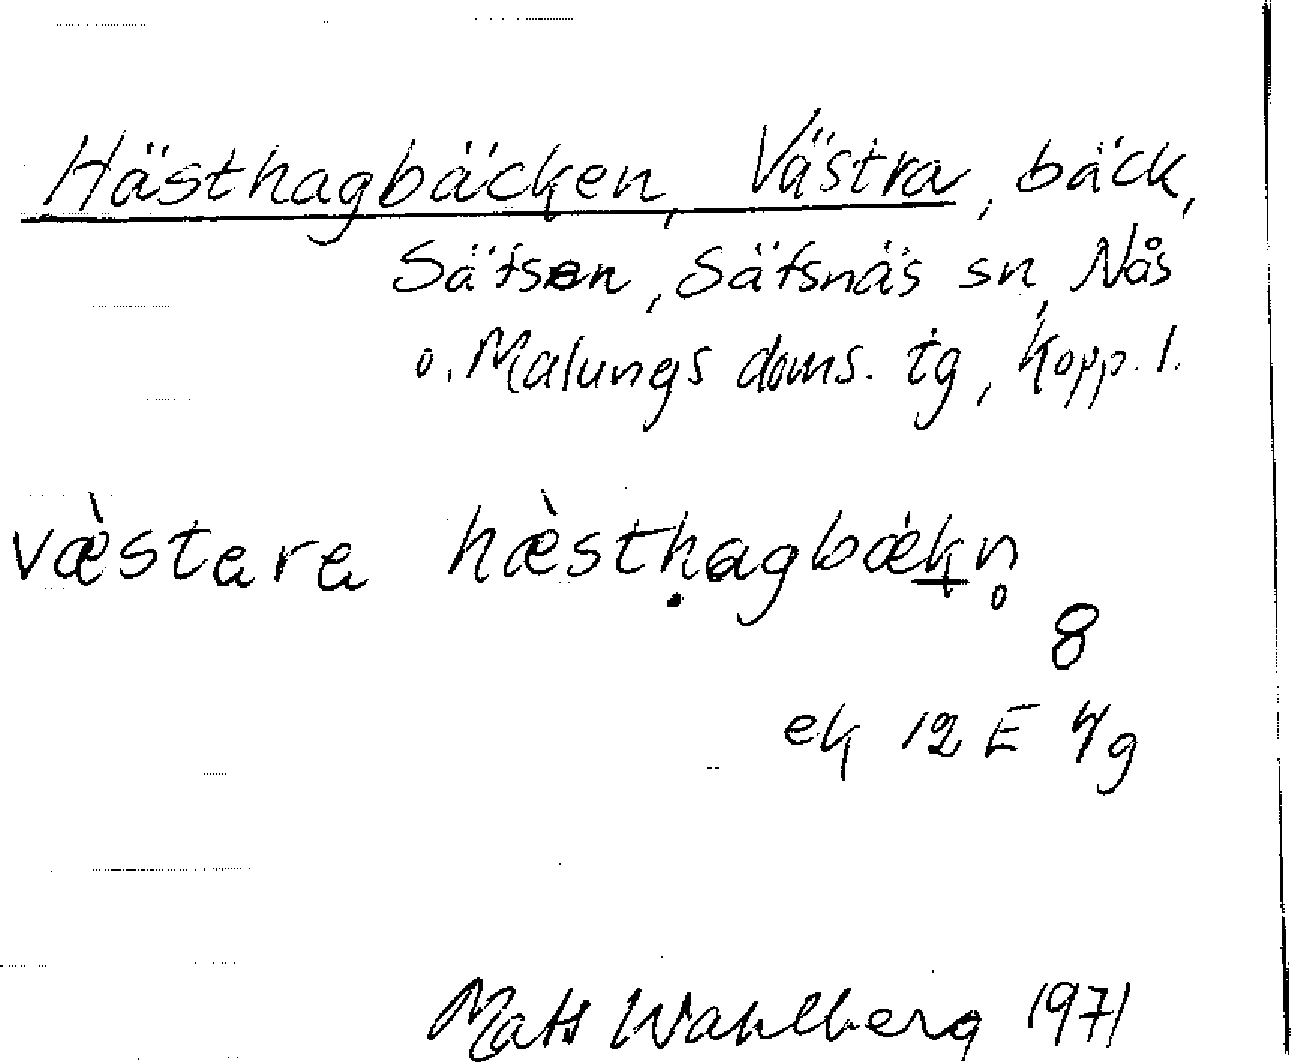 Hästhagbäcken, Västra, bäck,
Sätsen, Sätsnäs sn, Nås
o. Malungs doms. tg, Kopp. l.
væ̀stara hæ̀stḥagbækn̥
8
ek 12 E 4g
Mats Wahlberg 1971